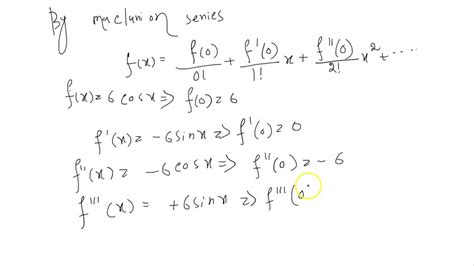 By maclurion series
f(x) = f(0)/0! + f'(0)/1! x + f''(0)/2! x² + ....
f(x) = 6 cosx => f(0) = 6
f'(x) = -6sinx => f'(0) = 0
f''(x) = -6cosx => f''(0) = -6
f'''(x) = +6sinx => f'''(0